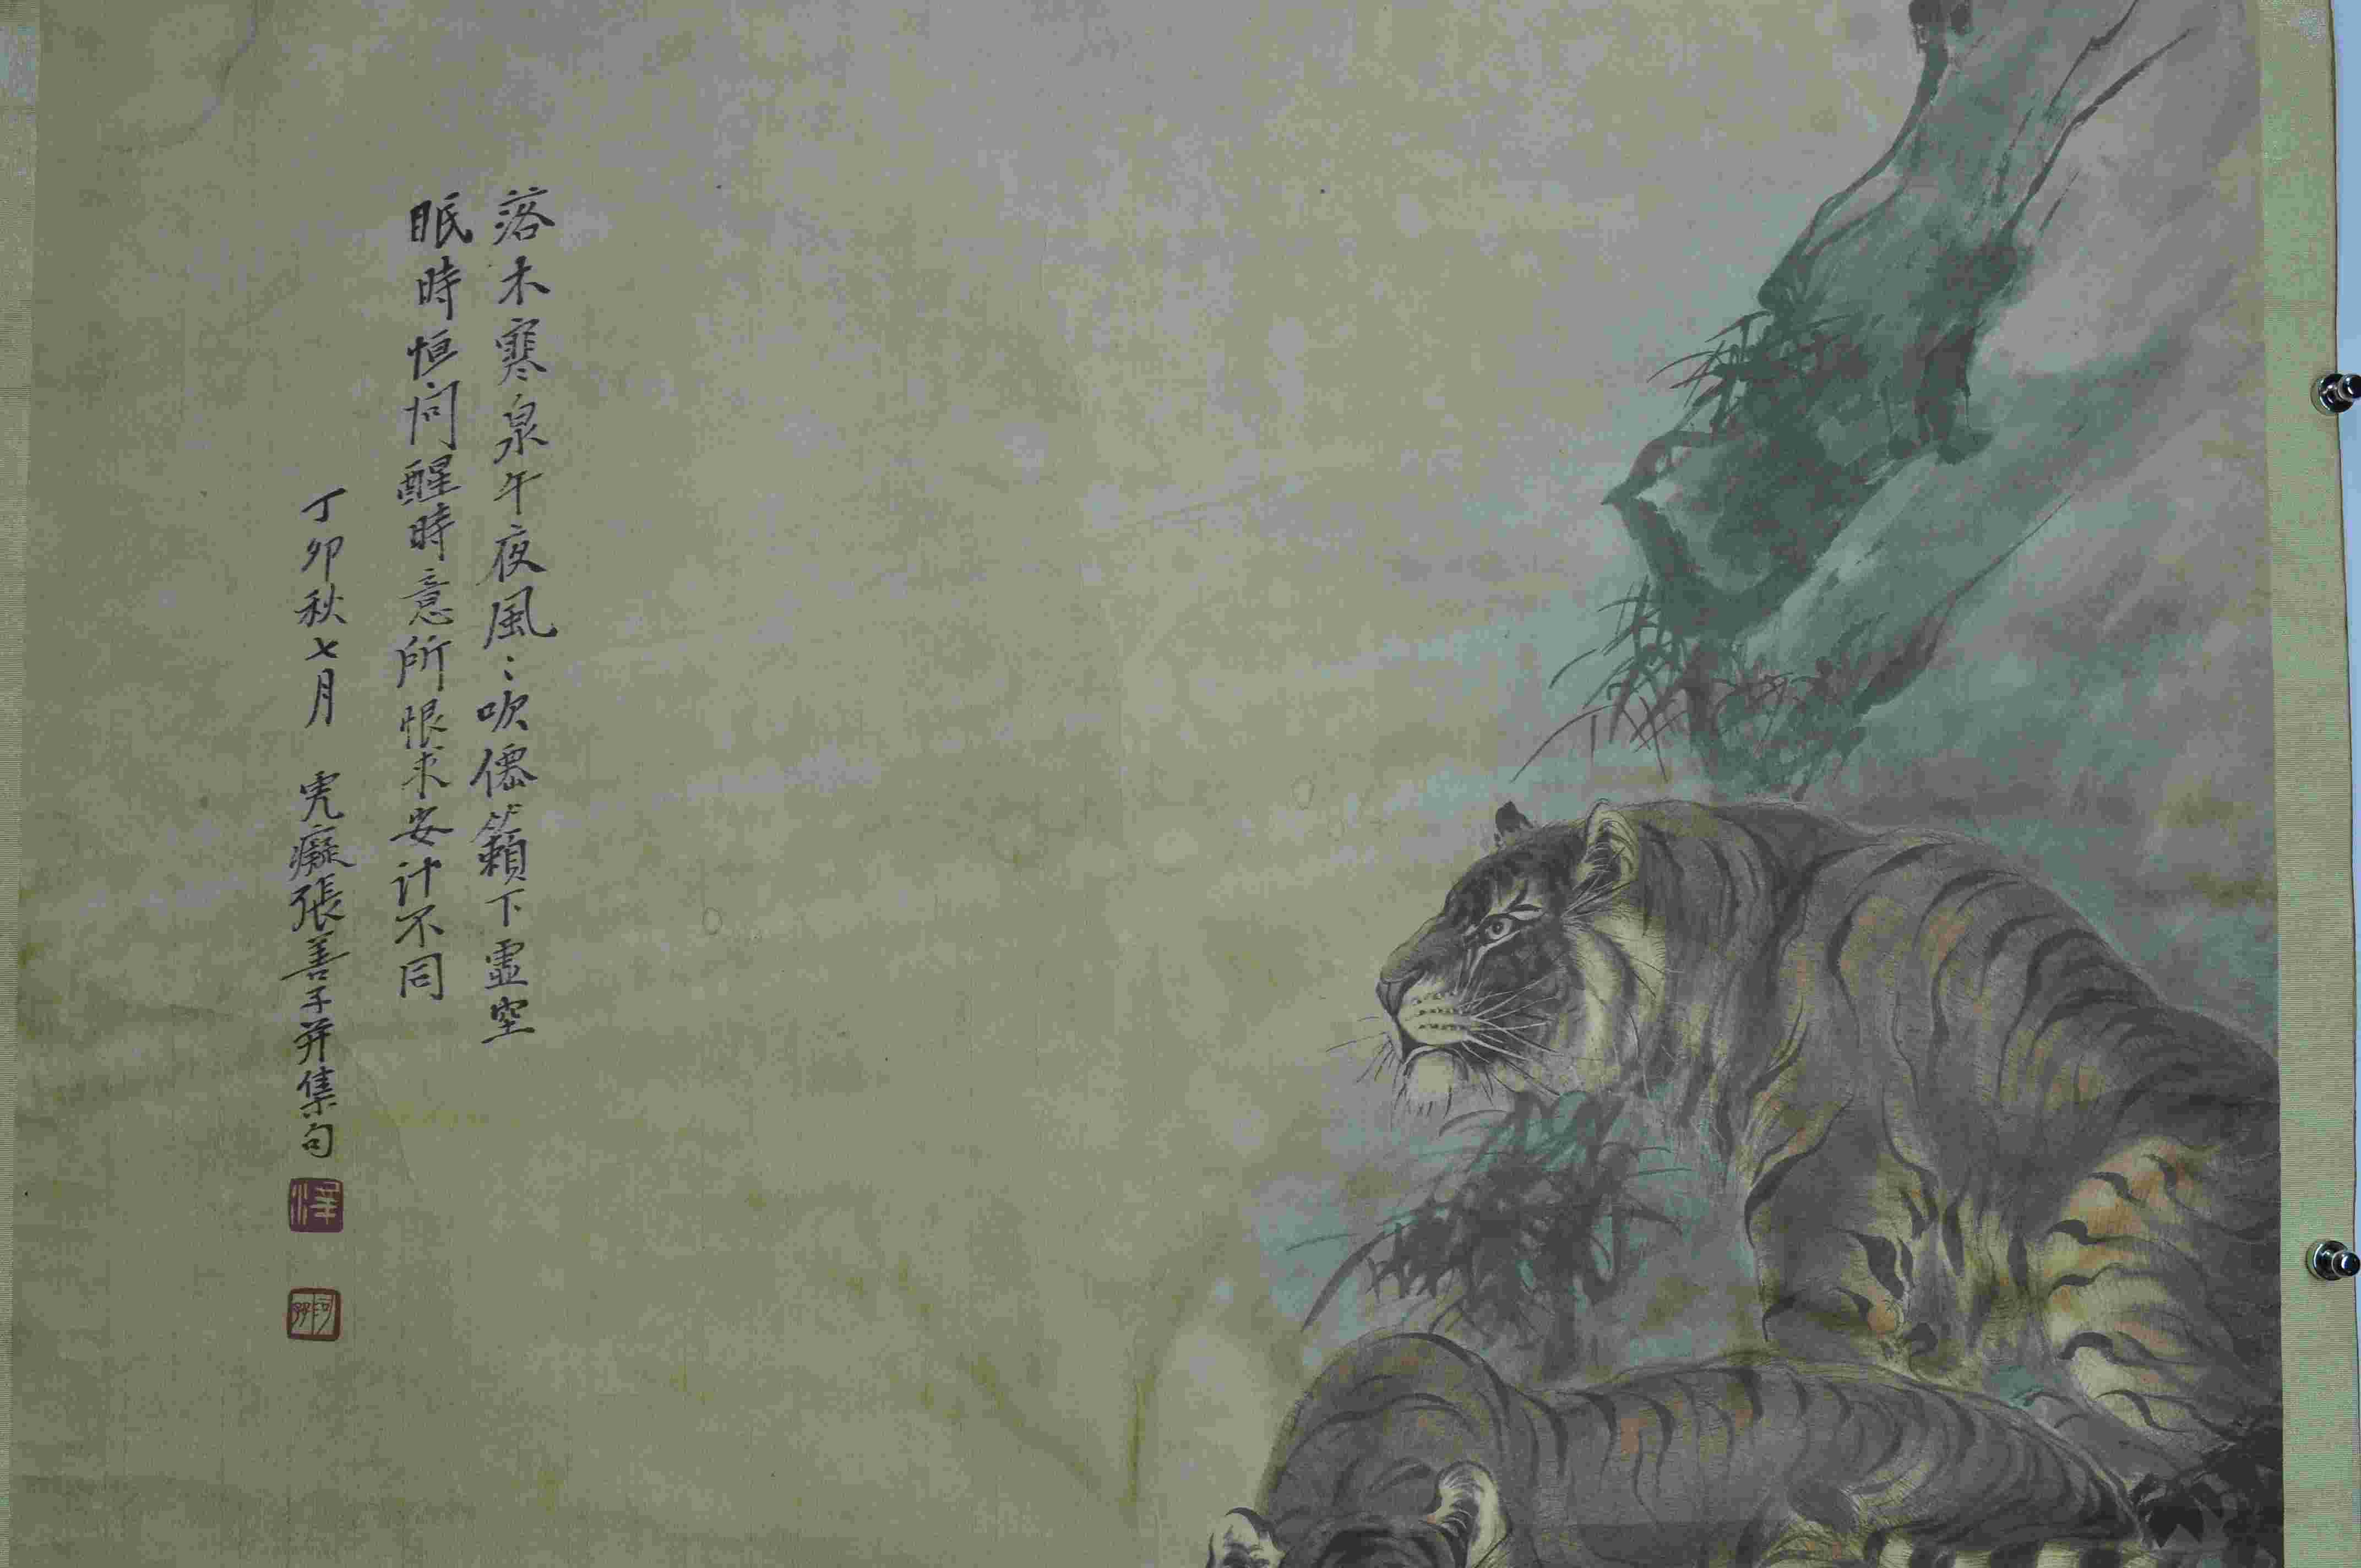 落木寒泉午夜風〻吹僊籟下虛空
眠時恒向醒時意所恨求安計不同
丁卯秋七月 虎癡張善子并集句
澤